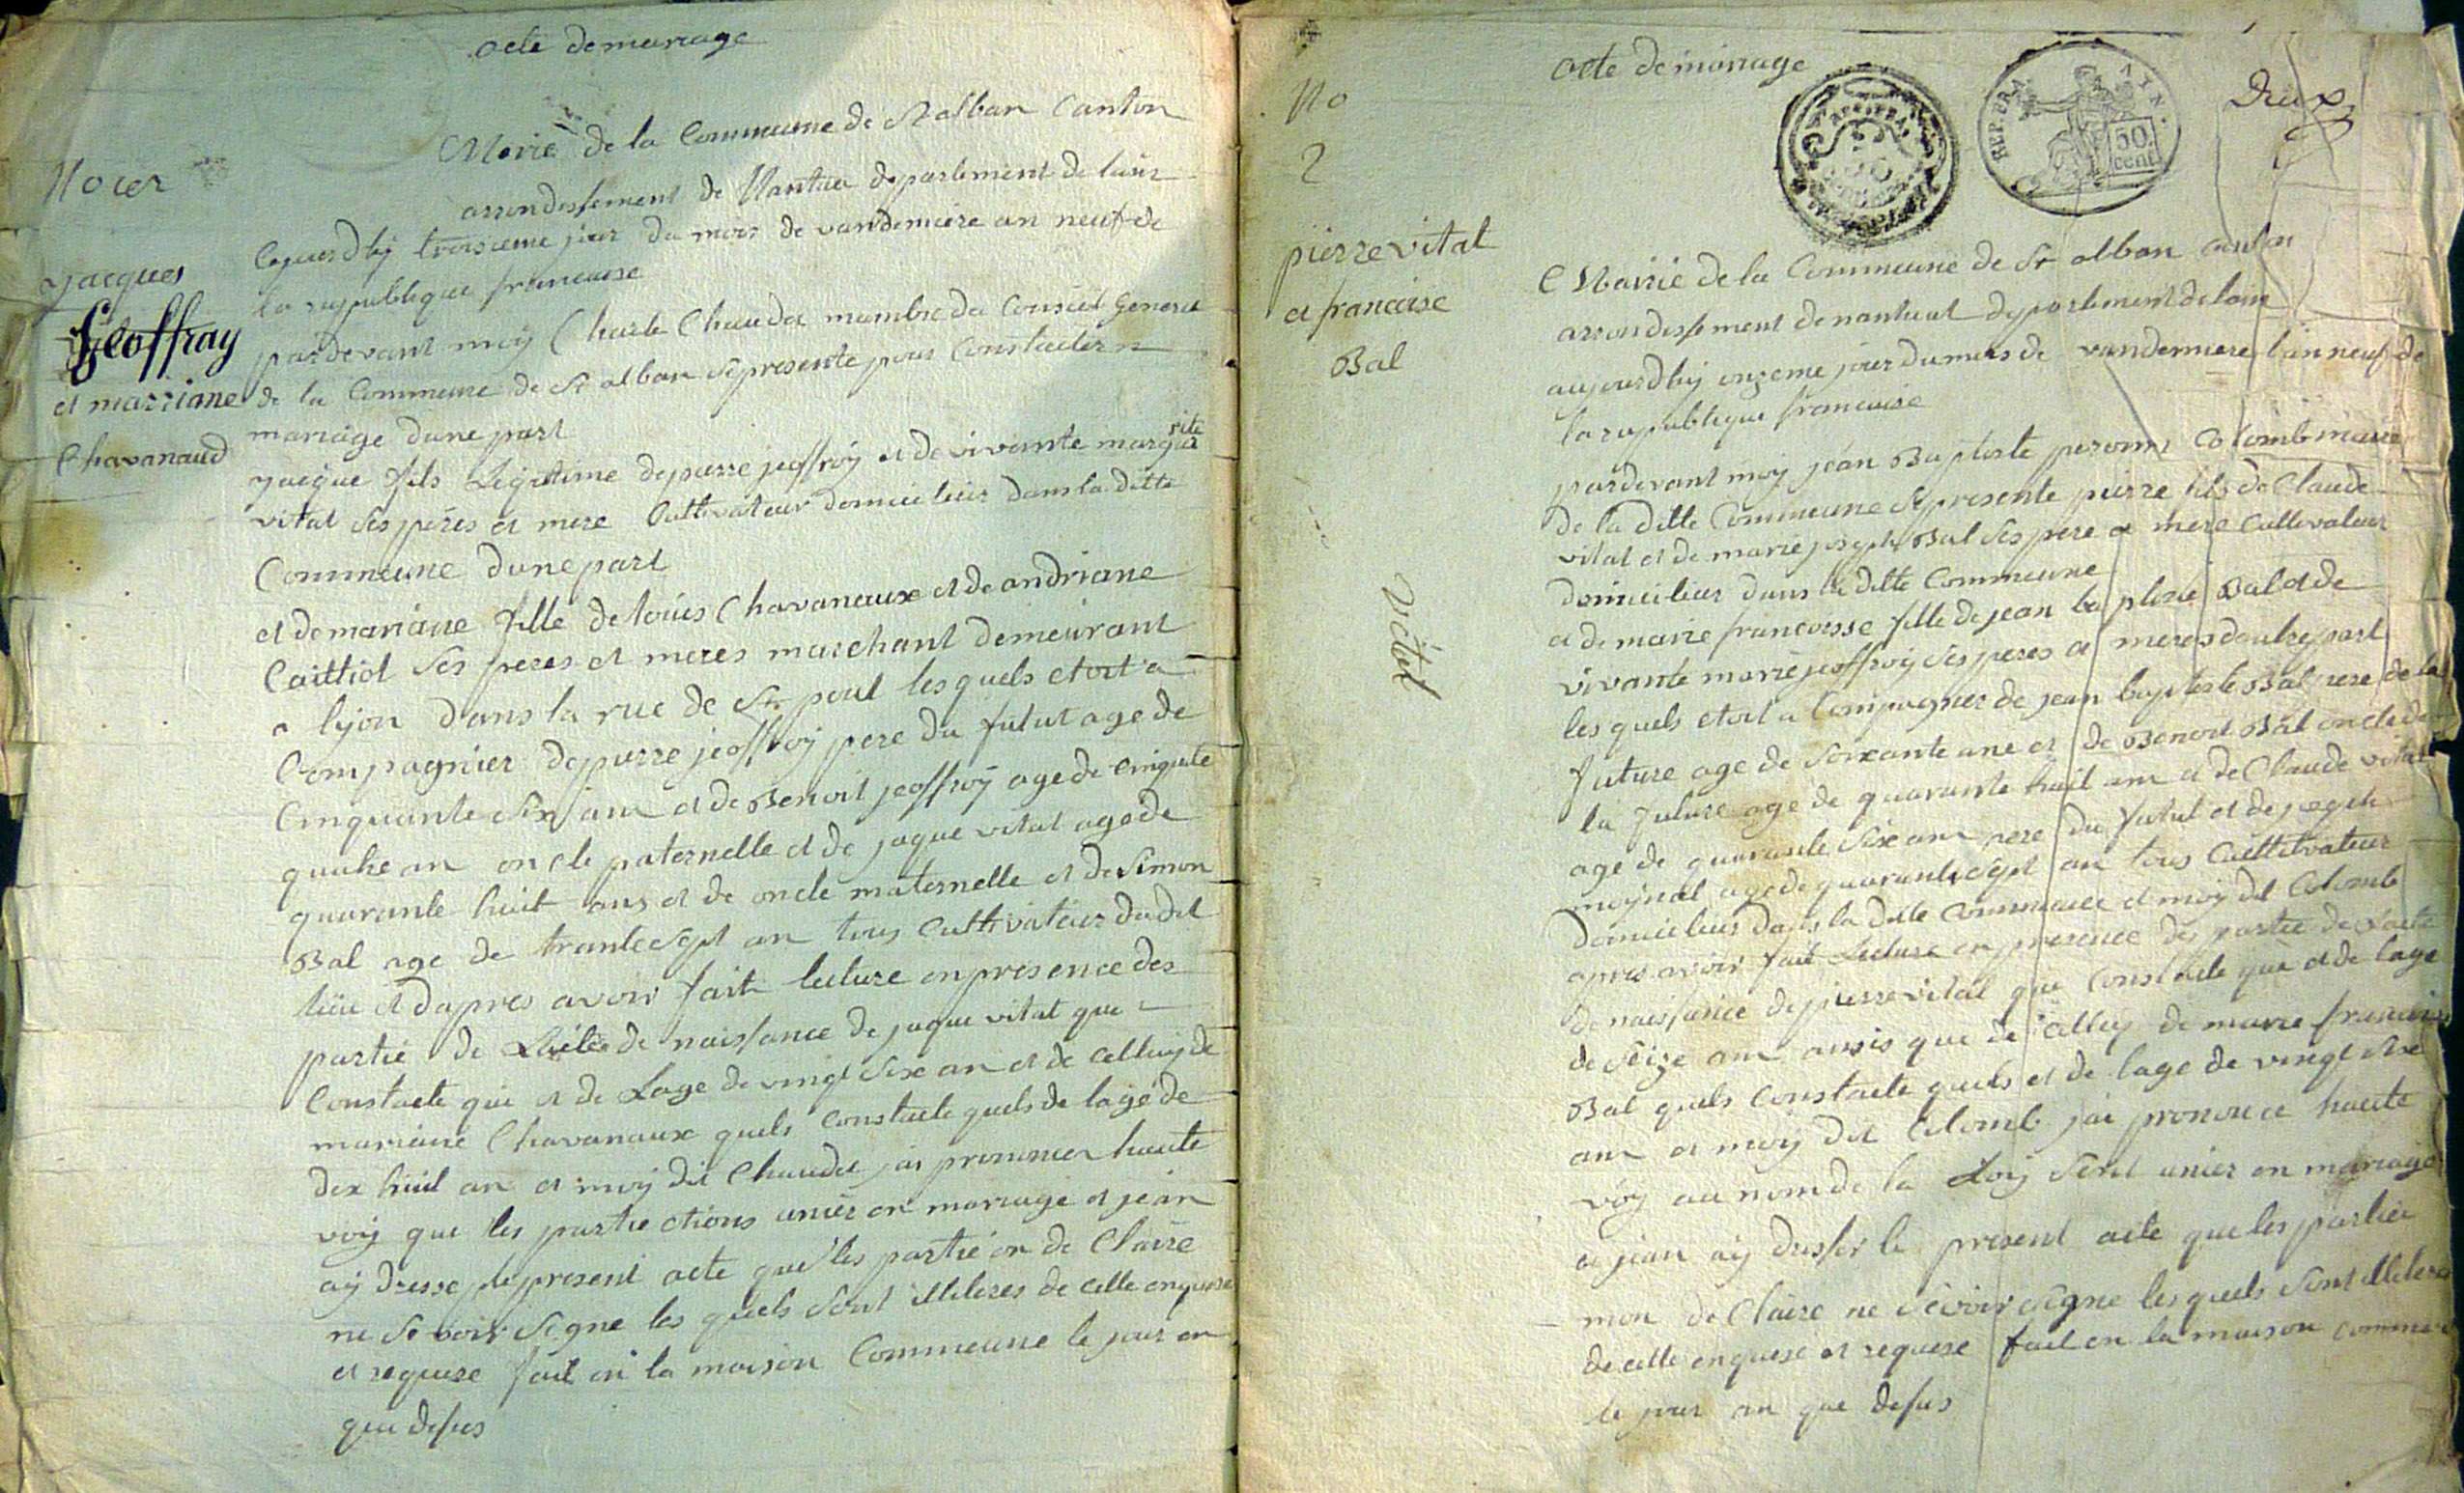 acte demariage
No 1er
Jacques
Geoffray
et marriane
Chavanaud
Marie de la Commeune de St alban Canton
arrondissement de Nantua departement de lain
Cejourdhy troisieme jour du mois de vandemiere an neuf de
la republique francaise
pardevant moy Charle Chaudet mambre du Conseil General
de la Commeune de St alban Sepresente pour Constater n
mariage dune part
jacque fils Legitime depierre jeoffroy et de vivante margue
rite
vitat ses peres et mere Cultivateur domicilier dans la ditte
Commeune dune part
et demariane fille de louis Chavanaux et de andriane
Caittiot Ses peres et meres marchant demeurant
a lyon dans la rue de St poul les quels etoit a
Compagnier depierre jeoffroy pere du futut age de
Cinquante Six an et de Benoit jeoffroy age de cinquate
quatre an on cle paternelle et de jaque vitat age de
quarante huit ans et de oncle maternelle et de Simon
Bal age de trante sept an tous Cultivateur dudit
lieu et dapres avoir fait lecture en presence des
partie de Lacte de naissance de jaque vitat que
Constacte que et de Lage de vingt Six an et de celluy de
mariane Chavanaux quels Constacte quels de lage de
dix huit an et moy dit Chaudet jai prononcer haute
voiy que les partie etions unier en mariage et jean
ay dresse le present acte que les partie on de Claire
ne Sevoir Signe les quels Sont illiteres de cette enquere
et requise fait en la maison Commeune le jour an
que desus
acte demariage
REP. FRA.
50
cent.
Deux
No
2
pierre vitat
et francaise
Bal
Vitat
Mairie de la Commeune de St alban canton
arrondissement denantuat departement delain
aujourdhy onzeme jour dumois de vandemiere lan neuf de
la republique francaise
pardevant moy jean Baptiste peronne Colomb maire
de la ditte Commeune Sepresente pierre fils de Claude
vitat et de marie joseph Bal Ses pere et mere Cultevateur
domicilier dans la ditte Commeune
et de marie francoisse fille de jean baptiste Bal et de
vivante marie jeoffroy Ses peres et meres dautre part
les quels etoit a Compagnier de jean baptiste Bal pere de la
future age de Soixante une et de Benoit Bal oncle de
la future age de quarante huit an et de Claude vitat
age de quarante Six an pere du futut et de joseph
moynat age de quarante sept an tous Cultivateur
domicilier dans la ditte Commeune et moy dit Colomb
apres avoir fait Lecture en presence des partie de lacte
de naissance de pierre vitat que Constacte que et de lage
de Seize an ansis que de celluy de marie francois
Bal quels Constacte quels et de lage de vingt Six
an et moy dit Colomb jai prononce haute
voy au nom de la Loy Sont unier en mariage
et jean ay dresser le present acte que les partier
mon de Claire ne Sevoir Signe les quels Sont illiteres
de cette enquere et requere fait en la maison commeune
le jour an que desus